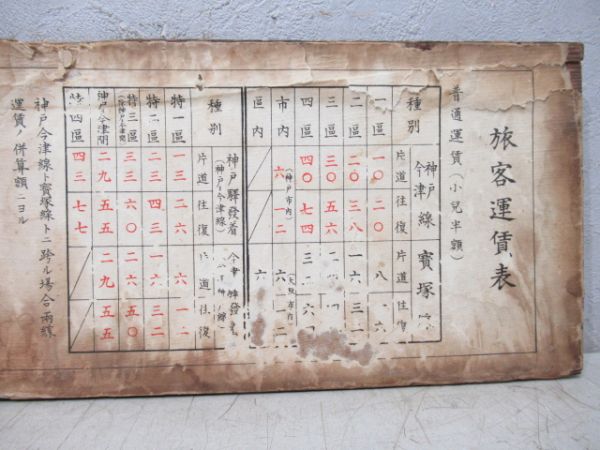 旅客運賃表
普通運賃(小兒半額)
種別
神戸今津線
寶塚
片道
往復
片道
往復
一區
一〇
二〇
八
一六
二區
二〇
三八
一六
三一
三區
三〇
五六
四區
四〇
七四
三二
六
市内
區内
(神戸市内)
六
一二
六
一二
種別
神戸驛發着
(神戸今津線)
片道
往復
道
往復
特一區
一三
二六
六
一二
特二區
二三
四三
一六
三二
特三區
三三
六〇
二六
五〇
神戸今津間
二九
五五
二九
五五
特四區
四三
七七
神戸今津線ト寶塚線トニ跨ル場合兩線
運賃ノ併算額ニヨル